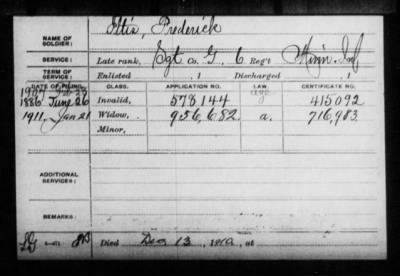 NAME OF SOLDIER: Ittis, Frederick
SERVICE: Late rank, Sgt Co. G, 6 Reg't Minn. Inf
TERM OF SERVICE: Enlisted , 1 Discharged , 1
DATE OF FILING. CLASS. APPLICATION NO. LAW. CERTIFICATE NO.
1907
1886 June 26 Invalid, 578144 g 415092
1911, Jan 21 Widow, 956,682 a. 716,983
Minor,
ADDITIONAL SERVICES:
REMARKS:
Died Dec 13, 1910, at